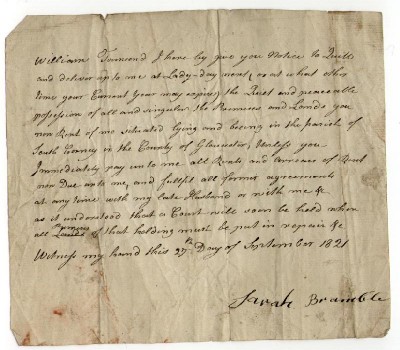 William Townsend I here by give you Notice to Quitt
and deliver up to me at Lady-day next, or at what other
time your Current Year may expire, the Quiet and peaceable
possession of all and singular the Premises and Lands you
now Rent of me situated lying and being in the parish of
South Cerney in the County of Gloucester, Unless you
Immediately pay unto me all Rents and arrears of Rent
now Due unto me, and fulfill all former agreements
at any time with my late Husband or with me &
as it understood that a Court will soon be held when
all premises of that holding must be put in repair &c
Witness my hand this 27th Day of September 1821
Sarah Bramble